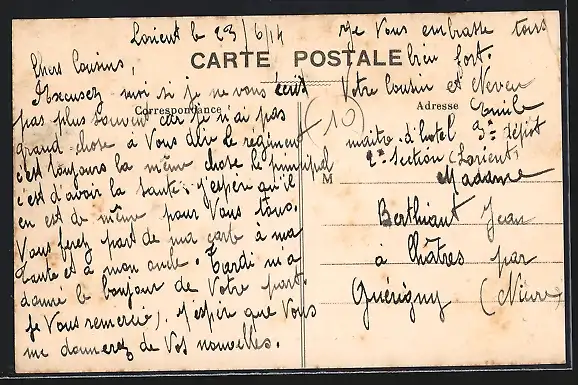 Lorient le 23/6/14
CARTE POSTALE
Correspondance
Adresse
Chers Cousins,
Excusez moi si je ne vous écrit
pas plus souvent car je n'ai pas
grand chose à Vous dire le régiment
c'est toujours la même chose le principal
c'est d'avoir la santé. j'espère qu'il
en est de même pour Vous tous.
Vous ferez part de ma carte à ma
tante et à mon oncle. Tardi m'a
donné le bonjour de Votre part.
je Vous remercie), j'espère que Vous
me donnerez de Vos nouvelles.
Je Vous embrasse tous
bien fort.
Votre Cousin et Neveu
Emile
maitre d'hotel 3e dépôt
2e Section (Lorient)
10
M
Madame
Berthiaut Jean
à Châtres par
Guérigny (Nièvre)